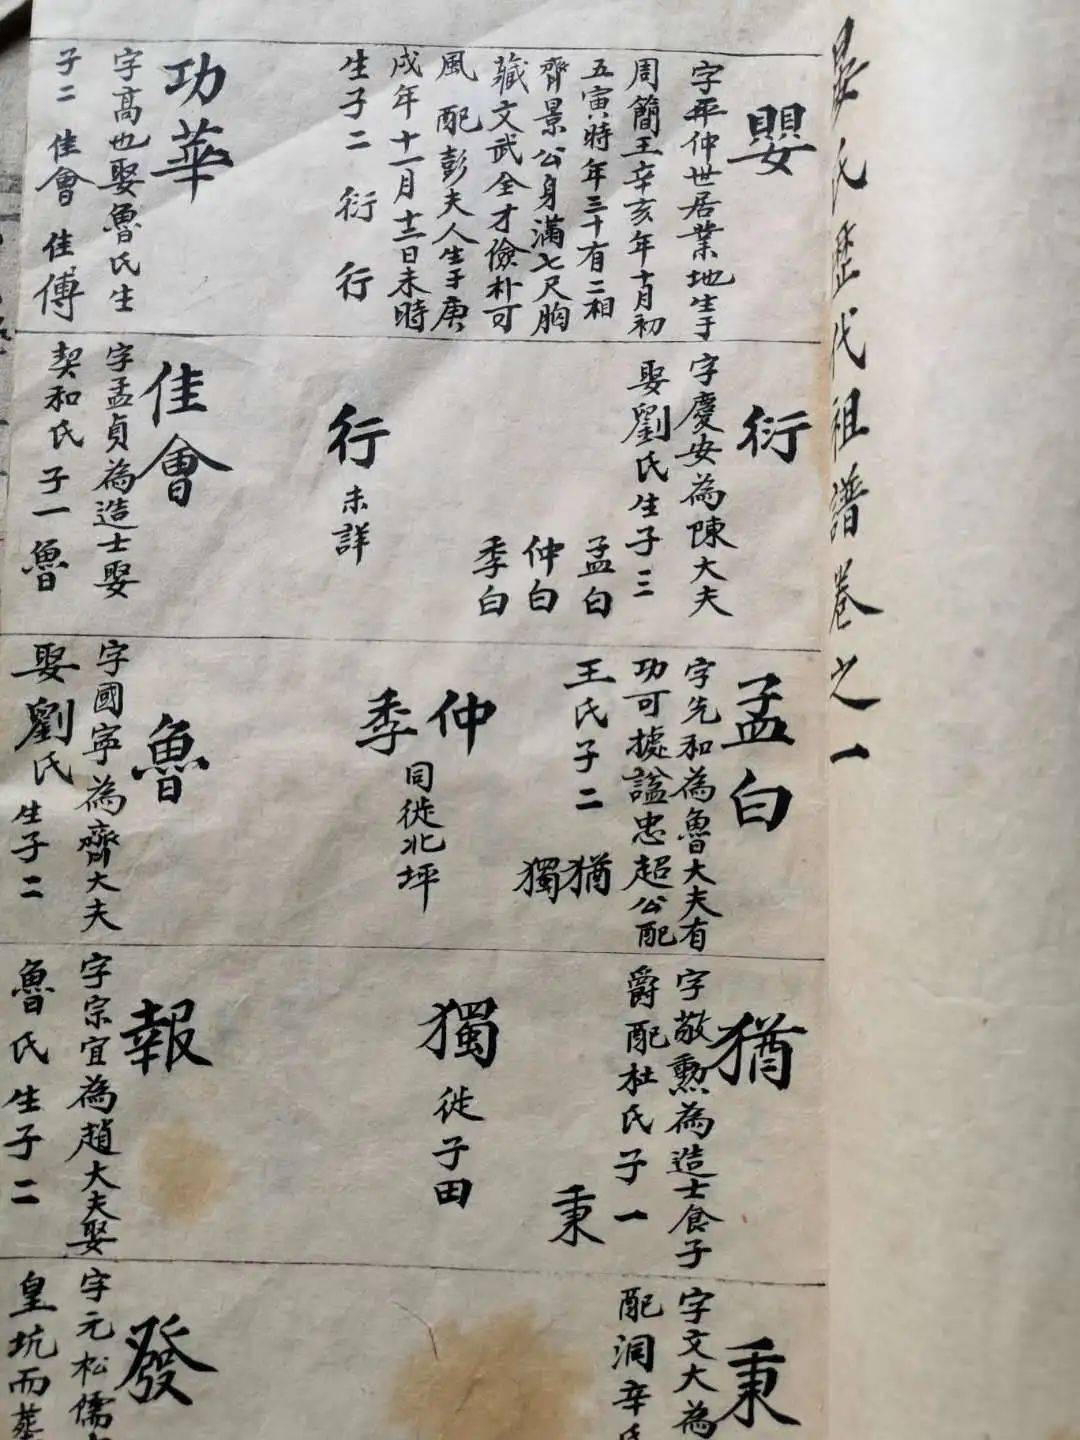 晏氏歷代祖譜卷之一
嬰
字平仲世居業地生于
周簡王辛亥年十月初
五寅時年三十有二相
齊景公身滿七尺胸
藏文武全才儉朴可
風 配彭夫人生于庚
戌年十一月十二日未時
生子二 衍 行
功華
字高也娶魯氏生
子二 佳會 佳傅
衍
字慶安為陳大夫
娶劉氏生子三
孟白
仲白
季白
行 未詳
佳會
字孟貞為造士娶
契和氏 子一 魯
孟白
字先和為魯大夫有
功可據謚忠超公配
王氏子二
猶
獨
仲
季
同徙北坪
魯
字國寧為齊大夫
娶劉氏生子二
猶
字敬勲為造士食子
爵配杜氏子一
秉
獨 徙子田
報
字宗宜為趙大夫娶
魯氏生子二
秉
字文大為
配洞辛氏
發
字元松儒
皇坑而葬